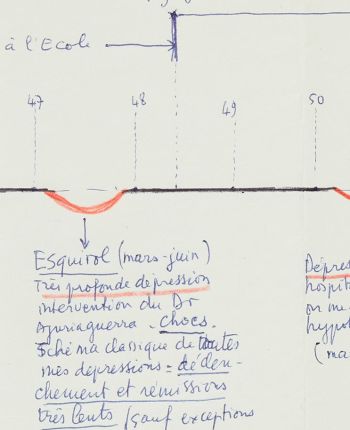 à l'Ecole
47 48 49 50
Esquirol (mars-juin)
Très profonde dépression
intervention du Dr
Ajuriaguerra - chocs.
Schéma classique de toutes
mes dépressions = déclen-
chement et rémissions
très lents (sauf exceptions
Dépres
hospit
on me
hypot
(ma